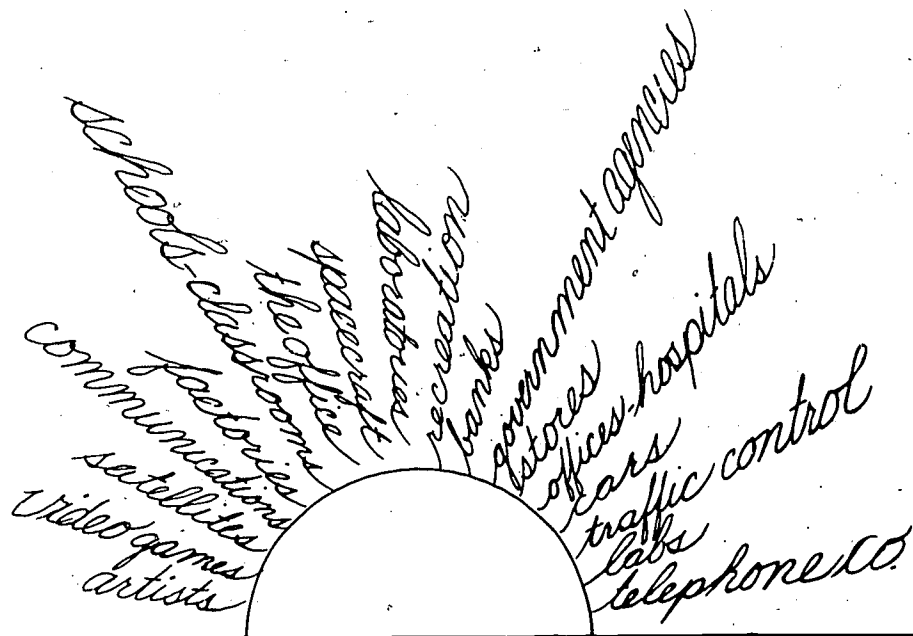 artists
video games
satellites
communications
factories
schools-classrooms
the office
spacecraft
laboratories
recreation
banks
government agencies
stores
offices-hospitals
cars
traffic control
labs
telephone co.